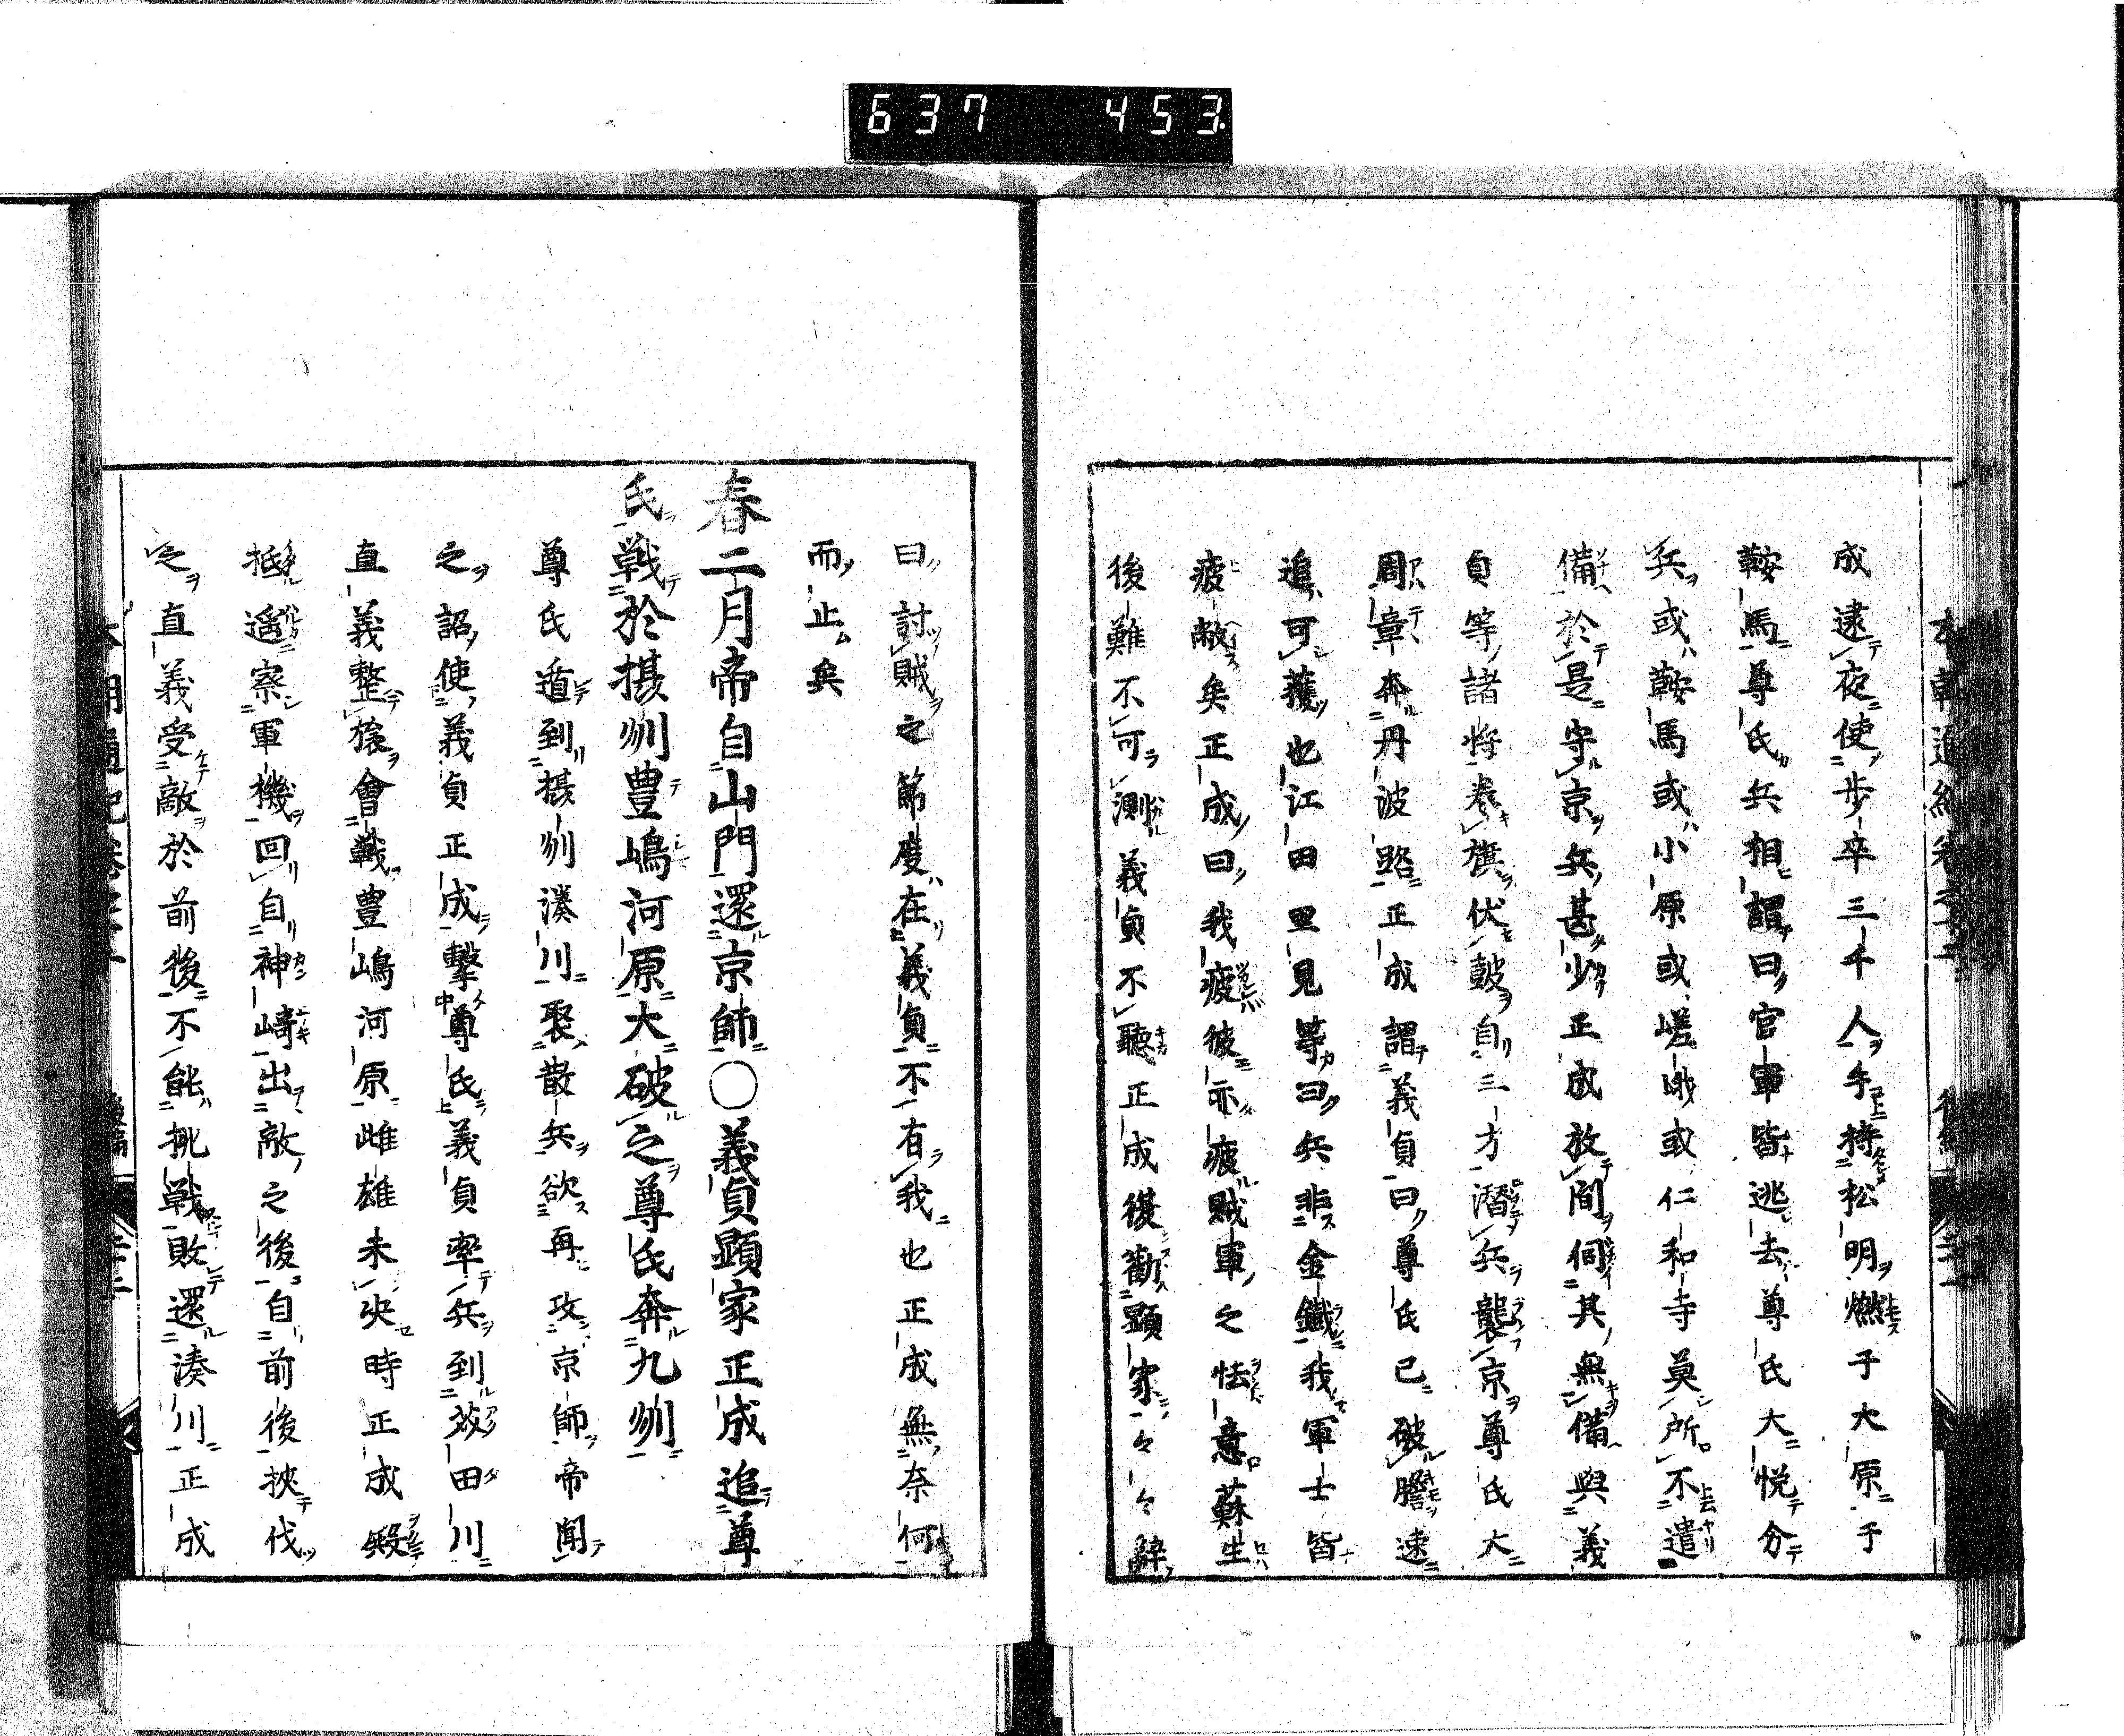 637 453
成逮夜使歩卒三千人手持松明燃于大原于
鞍馬尊氏兵相謂曰官軍皆逃去尊氏大悦分
兵或鞍馬或小原或嵯峨或仁和寺莫所不遣
備於是守京兵甚少正成放間伺其無備與義
貞等諸将巻旗伏鼓自三方潜兵襲京尊氏大
周章奔丹波路正成謂義貞曰尊氏已破膽速
追可獲也江田里見等曰兵非金鐵我軍士皆
疲敝矣正成曰我疲彼亦疲賊軍之怯意蘇生
後難不可測義貞不聽正成復勸顕家々々辞
曰討賊之節度在義貞不有我也正成無奈何
而止矣
春二月帝自山門還京師○義貞顕家正成追尊
氏戦於摂州豊嶋河原大破之尊氏奔九州
尊氏遁到摂州湊川聚散兵欲再攻京師帝聞
之詔使義貞正成撃尊氏義貞率兵到芥田川
直義整旅會戰豊嶋河原雌雄未决時正成殿
抵遥察軍機回自神崎出敵之後自前後挾伐
之直義受敵於前後不能挑戦敗還湊川正成